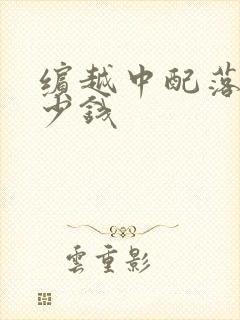 缤越中配落
少钱
雲重影